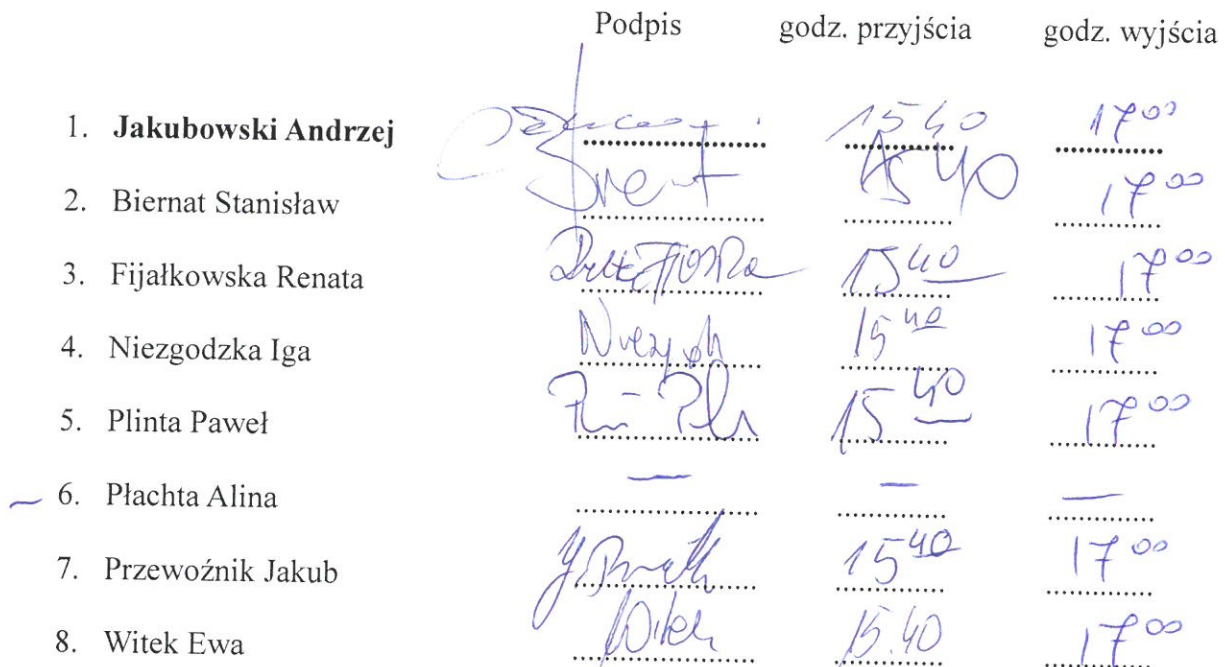 Podpis godz. przyjścia godz. wyjścia
1. Jakubowski Andrzej 15 40 17 00
2. Biernat Stanisław 15 40 17 00
3. Fijałkowska Renata 15 40 17 00
4. Niezgodzka Iga 15 40 17 00
5. Plinta Paweł 15 40 17 00
– 6. Płachta Alina – – –
7. Przewoźnik Jakub 15 40 17 00
8. Witek Ewa Witek 15.40 17 00